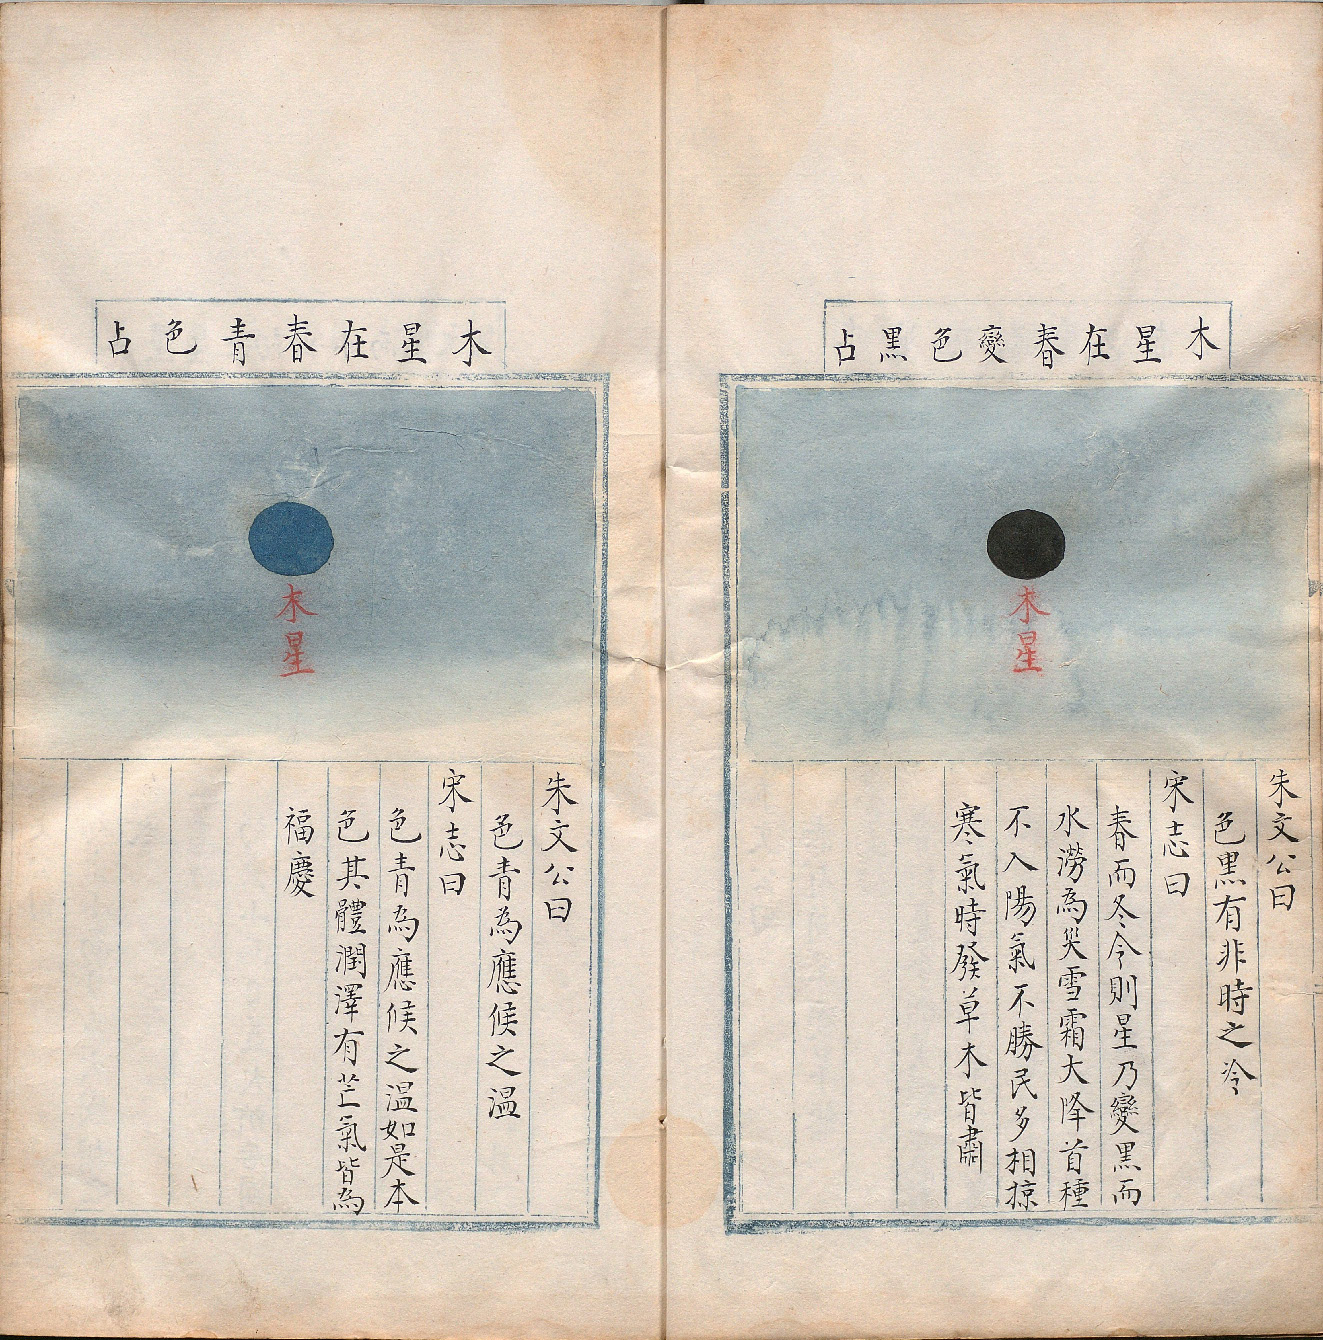 木星在春變色黑占
木星
朱文公曰
色黑有非時之冷
宋志曰
春而冬令則星乃變黑而
水澇為災雪霜大降首種
不入陽氣不勝民多相掠
寒氣時發草木皆肅
木星在春青色占
木星
朱文公曰
色青為應候之温
宋志曰
色青為應候之温如是本
色其體潤澤有芒氣皆為
福慶